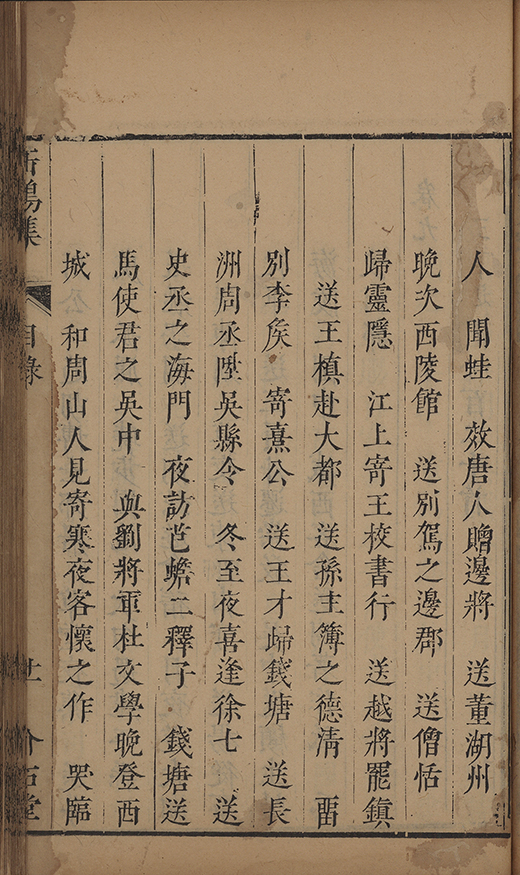 人　聞蛙　效唐人贈邊將　送董湖州
晚次西陵館　送別駕之邊郡　送僧恬
歸靈隱　江上寄王校書行　送越將罷鎮
送王槙赴大都　送孫主簿之德清　畱
別李矦　寄熹公　送王才歸錢塘　送長
洲周丞陞吳縣令　冬至夜喜逢徐七　送
史丞之海門　夜訪芑蟾二釋子　錢塘送
馬使君之吳中　與劉將軍杜文學晚登西
城　和周山人見寄寒夜客懷之作　哭臨
集　目錄　廿